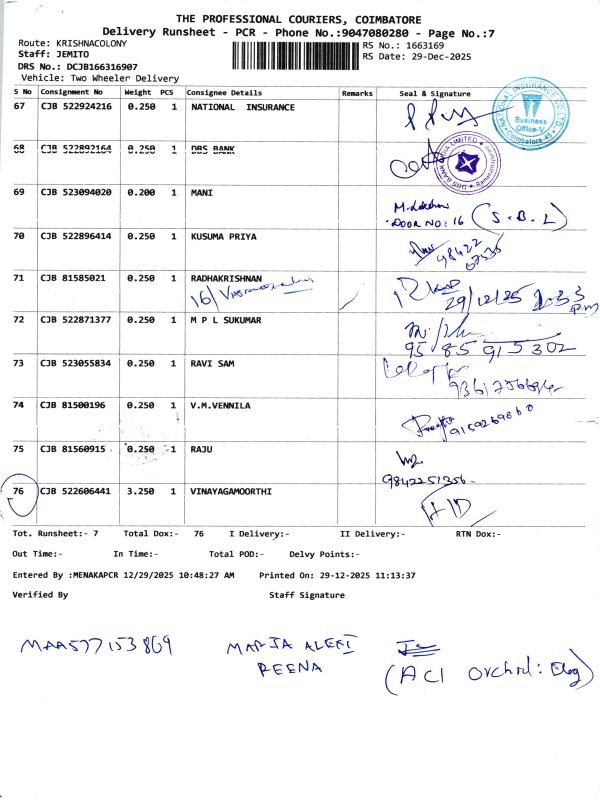 THE PROFESSIONAL COURIERS, COIMBATORE
Delivery Runsheet - PCR - Phone No.:9047080280 - Page No.:7
Route: KRISHNACOLONY
Staff: JEMITO
DRS No.: DCJB166316907
Vehicle: Two Wheeler Delivery
RS No.: 1663169
RS Date: 29-Dec-2025
S No Consignment No Weight PCS Consignee Details Remarks Seal & Signature
67 CJB 522924216 0.250 1 NATIONAL INSURANCE
NATIONAL INSURANCE CO LTD
Business
Office-V
Coimbatore-45
68 CJB 522892164 0.250 1 DBS BANK
69 CJB 523094020 0.200 1 MANI
DOOR NO: 16 (S.B.L)
70 CJB 522896414 0.250 1 KUSUMA PRIYA
98422
71 CJB 81585021 0.250 1 RADHAKRISHNAN
16/
29/12/25 2.33 pm
72 CJB 522871377 0.250 1 M P L SUKUMAR
95 85 915302
73 CJB 523055834 0.250 1 RAVI SAM
74 CJB 81500196 0.250 1 V.M.VENNILA
9159269860
75 CJB 81560915 0.250 1 RAJU
9842251356
76 CJB 522606441 3.250 1 VINAYAGAMOORTHI
H/D
Tot. Runsheet:- 7 Total Dox:- 76 I Delivery:- II Delivery:- RTN Dox:-
Out Time:- In Time:- Total POD:- Delvy Points:-
Entered By :MENAKAPCR 12/29/2025 10:48:27 AM Printed On: 29-12-2025 11:13:37
Verified By Staff Signature
MAA577153869 MARIA ALEXI
REENA
(ACI Orchid: